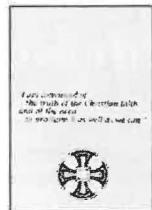 I am convinced of
the truth of the Christian faith
and of the need
to proclaim it as well as we can"